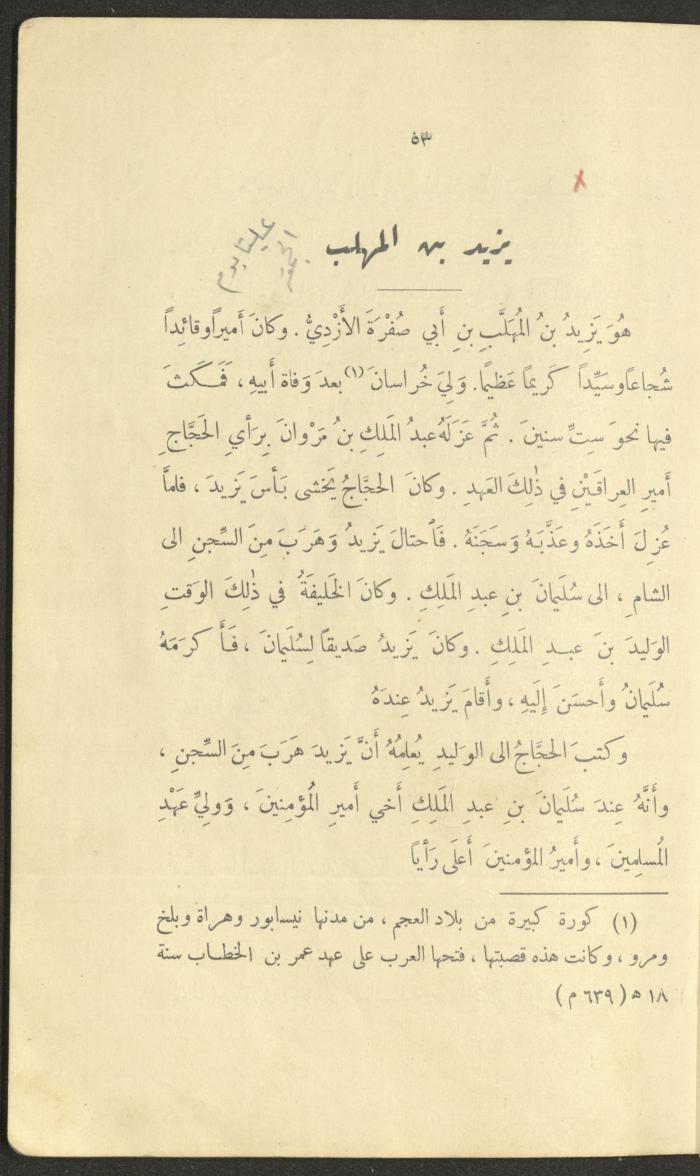 ٥٣
يزيد بن المهلب
هُوَ يَزِيدُ بنُ المُهَلَّبِ بنِ أَبي صُفْرَةَ الأَزْدِيُّ . وكانَ أَميراً وقائِداً
شُجاعاً وسَيِّداً كَريماً عَظيماً. وَلِيَ خُراسانَ (١) بعدَ وَفاة أَبيهِ ، فَمَكَثَ
فيها نحوَ سِتِّ سنينَ . ثُمَّ عَزَلَهُ عبدُ المَلِكِ بنُ مَرْوانَ بِرَأيِ الحَجَّاجِ
أَميرِ العِراقَيْنِ في ذٰلِكَ العَهدِ . وكانَ الحجَّاجُ يَخشى بَأسَ يَزيدَ ، فلمَّا
عُزِلَ أَخَذَهُ وعَذَّبَهُ وَسَجَنَهُ . فَاحتالَ يَزيدُ وَهَرَبَ مِنَ السِّجنِ الى
الشامِ ، الى سُلَيمانَ بنِ عبدِ المَلِكِ . وكانَ الخَليفَةُ في ذٰلِكَ الوَقتِ
الوَليدَ بنَ عبدِ المَلِكِ . وكانَ يَزيدُ صَديقاً لِسُلَيمانَ ، فَأَكرَمَهُ
سُلَيمانُ وأَحسَنَ إِلَيهِ ، وأَقامَ يَزيدُ عِندَهُ
وكتبَ الحجَّاجُ الى الوَليدِ يُعلِمُهُ أَنَّ يَزيدَ هَرَبَ مِنَ السِّجنِ ،
وأَنَّهُ عِندَ سُلَيمانَ بنِ عبدِ المَلِكِ أَخي أَميرِ المُؤمِنينَ ، وَوليِّ عَهْدِ
المُسلِمينَ ، وأَميرُ المؤمنينَ أَعلَى رَأياً
(١) كورة كبيرة من بلاد العجم ، من مدنها نيسابور وهراة وبلخ
ومرو ، وكانت هذه قصبتها ، فتحها العرب على عهد عمر بن الخطاب سنة
١٨ ه (٦٣٩ م)